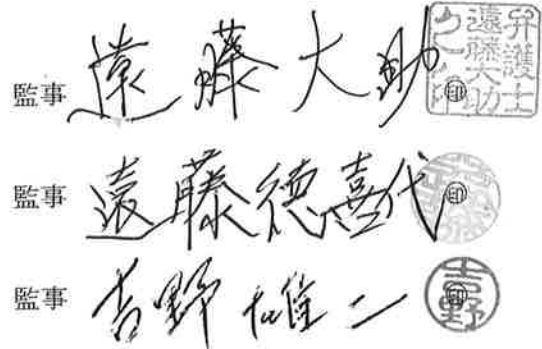 監事 遠藤大助 ㊞ 弁護士遠藤大助之印
監事 遠藤徳喜代 ㊞
監事 吉野雄二 ㊞ 吉野